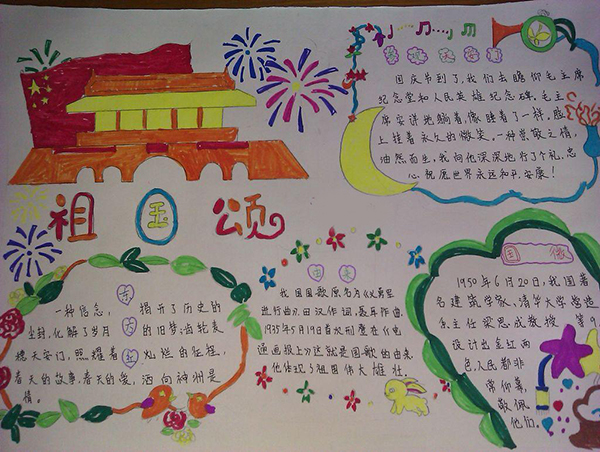 祖国颂
国庆节到了,我们去瞻仰毛主席
纪念堂和人民英雄纪念碑。毛主
席安详地躺着,像睡着了一样,脸
上挂着永久的微笑,一种崇敬之情,
油然而生。我向他深深地行了个礼,忠
心祝愿世界永远和平,安康!
一种信念, 揭开了历史的
尘封,化解了岁月 的旧梦,齿轮表
穗天安门,照耀着 灿烂的征程,
春天的故事,春天的爱,洒向神州是
情。
由来
我国国歌原名为《义勇军
进行曲》,田汉作词,聂耳作曲,
1935年5月19日首次刊度在《电
通画报上》,这就是国歌的由来
他体现了祖国伟大雄壮。
国徽
1950年6月20日,我国著
名建筑学家、清华大学营造
系主任梁思成教授等9人
设计出金红两
色,人民都非
常仰慕,
敬佩
他们。